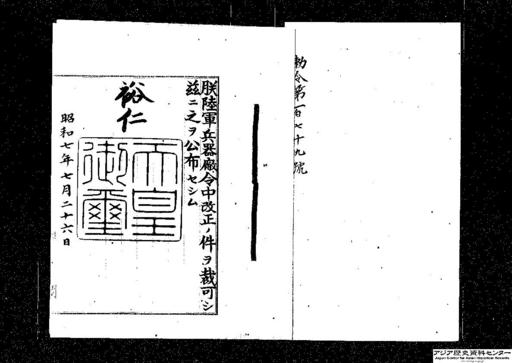 勅令第百七十九號
朕陸軍兵器廠令中改正ノ件ヲ裁可シ
茲ニ之ヲ公布セシム
裕仁
天皇
御璽
昭和七年七月二十六日
アジア歴史資料センター
Japan Center for Asian Historical Records